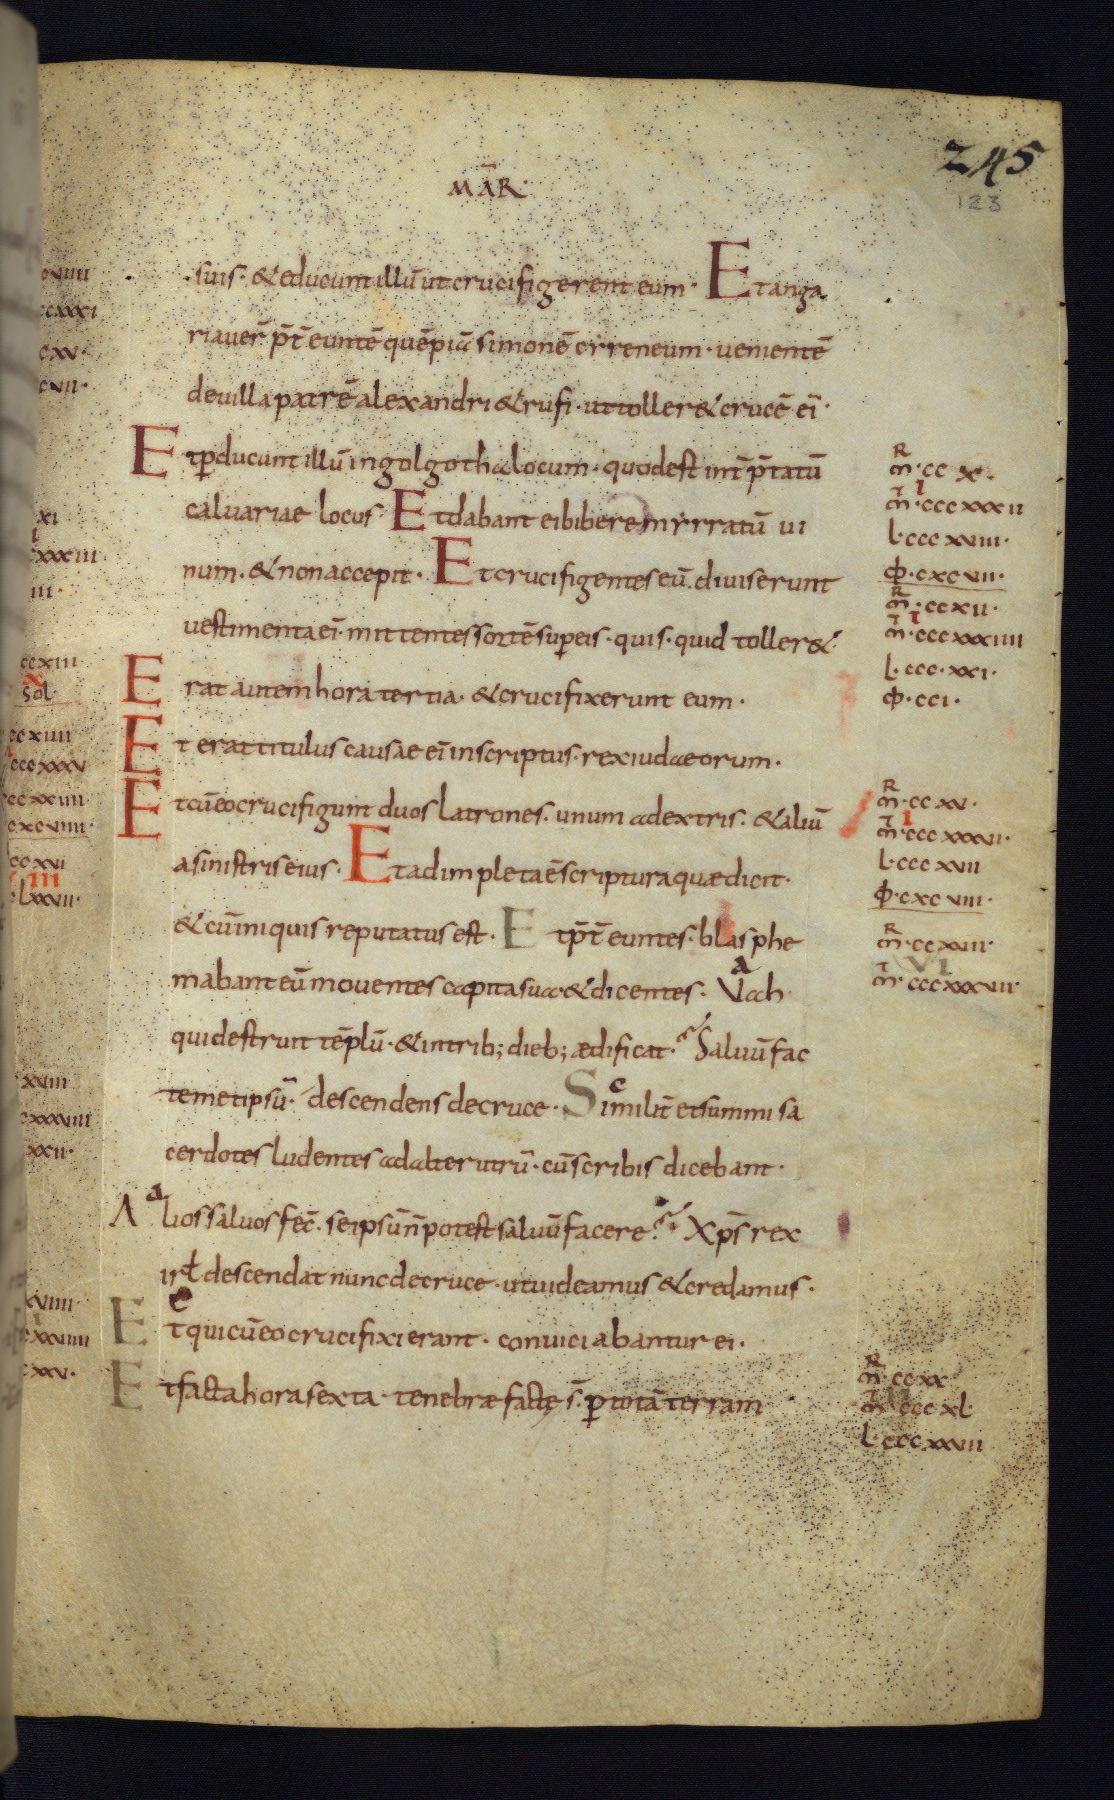 245
123
MAR̄
suis · & educunt illū ut crucifigerent eum · Et anga
riaver̄ p̄t̄ euntē quēpiā simonē cyreneum · uenientē
deuilla patrē alexandri & rufi · ut toller& crucē eī ·
Et ꝑducunt illū in golgotha locum · quod est int̄ p̄tatū
caluariae locus · Et dabant ei bibere myrratū ui
num · & non accepit · Et crucifigentes eū · diuiserunt
uestimenta eī · mittentes sortē sup̄ eis · quis · quid toller& ·
Erat autem hora tertia · & crucifixerunt eum ·
Et erat titulus causae eī inscriptus · rex iudaeorum ·
Et cū eo crucifigunt duos latrones · unum adextris · & aliū
asinistris eius · Et adimpleta ē scriptura quæ dicit ·
& cū iniquis reputatus est · Et p̄t̄ euntes · blasphe
mabant eū mouentes capita sua & dicentes · Uah
qui destruit tēplū · & intrib; dieb; ædificat · Saluū fac
temetipsū · descendens de cruce · Similit̄ et summi sa
cerdotes ludentes ad alterutrū · cū scribis dicebant ·
Alios saluos fec̄ · seipsū n̄ potest saluū facere · Xp̄s rex
isrł descendat nunc de cruce · ut uideamus & credamus ·
Et qui cū eo crucifixi erant · conuiciabantur ei ·
Et facta hora sexta · tenebræ factę s̄ · ꝑ totā terram
R
m̄ · cc x ·
i
m̄ · ccc xxx ii
l · ccc xx iii ·
R
m̄ · cc x ii ·
i
m̄ · ccc xxx iiii
l · ccc · xx i ·
cc i ·
R
m̄ · cc xv ·
i
m̄ · ccc xxxvi ·
l · ccc xvii
cxc viii ·
R
m̄ · cc xviii ·
vi
m̄ · ccc xxxvii ·
R
m̄ · cc xx
m̄ · ccc xl ·
l · ccc xxiii